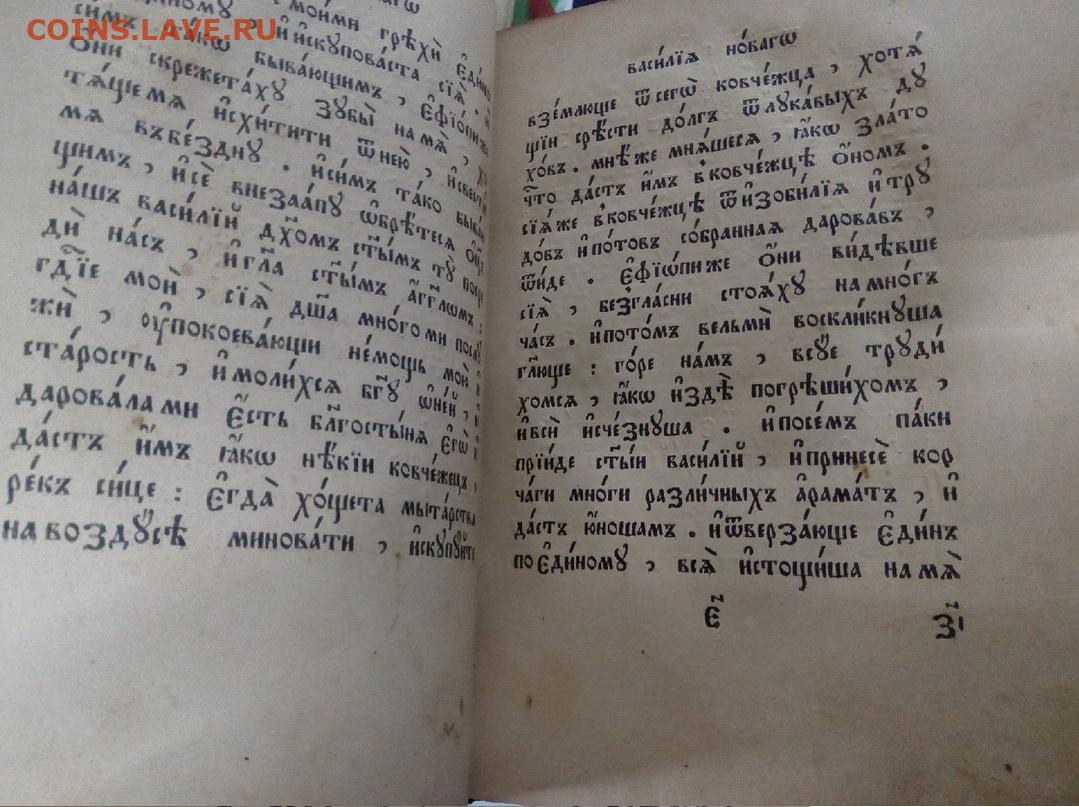 COINS.LAVE.RU
мои́ми грѣхѝ є҆ди́но
и҆ и҆скупова́ста сїѧ̀ .
си́мъ та́кѡ быва́ющимъ , є҆ѳїо́пи же
ѻ҆ни скрежета́ху зубы̀ на мѧ̀ ,
тѧ́щемѧ и҆схи́тити ѿ нею̀ , и҆ свести
мѧ въ бе́здну . и҆ си́мъ та́ко быва́ю
щимъ , и҆ сѐ внеза́апу ѡ҆брѣ́тесѧ ѻ҆ц҃ъ
на́шъ васи́лїй дх҃омъ ст҃ы́мъ тꙋ̀
дѝ на́съ , и҆ гл҃а ст҃ы́мъ а҆́гг҃лѡмъ :
гд҃їе моѝ , сїѧ̀ дш҃а мно́го ми послу
жѝ , ᲂу҆покоева́ющи не́мощь мою̀ и҆
ста́рость , и҆ моли́хсѧ бг҃ꙋ ѡ҆ не́й , и҆
дарова́ла ми є҆́сть бл҃госты́нѧ є҆гѡ̀ и҆
да́стъ и҆̀мъ ꙗ҆́кѡ нѣ́кїи ковче́жецъ ,
ре́къ си́це : є҆гда̀ хо́щета мыта́рства
на воздꙋ́сѣ минова́ти , и҆скупи́те
васи́лїѧ но́вагѡ
взе́млюще ѿ сегѡ̀ ковче́жца , хотѧ́
щїи срѣ́сти до́лгъ ѿ лука́выхъ дꙋ
хо́въ . мнѣ́ же мнѧ́шесѧ , ꙗ҆́кѡ зла́то
что̀ да́стъ и҆̀мъ в ковче́жцѣ ѻ҆́номъ .
сїѧ́ же в ковче́жцѣ ѿ и҆зоби́лїѧ и҆ трꙋ
до́въ и҆ по́товъ со́бранная дарова́въ ,
ѿи́де . є҆ѳїѡ́пи же ѻ҆ни ви́дѣвше
сїѧ̀ , безгла́сни стоѧ́ху на мно́гъ
ча́съ . и҆ пото́мъ вельмѝ воскли́кнуша
гл҃юще : го́ре на́мъ , всꙋ́е трꙋди́
хомсѧ , ꙗ҆́кѡ и҆здѣ̀ погрѣши́хомъ ,
и҆ всѝ и҆сче́знуша . и҆ посе́мъ па́ки
прїи́де ст҃ы́и васи́лїй , и҆ принесѐ кор
ча́ги мно́ги разли́чныхъ а҆рама́тъ , и҆
да́стъ ю҆́ношамъ . и҆ ѿверза́юще є҆ди́нъ
по є҆ди́ному , всѧ̀ и҆стощи́ша на мѧ̀
є҃
з҃і